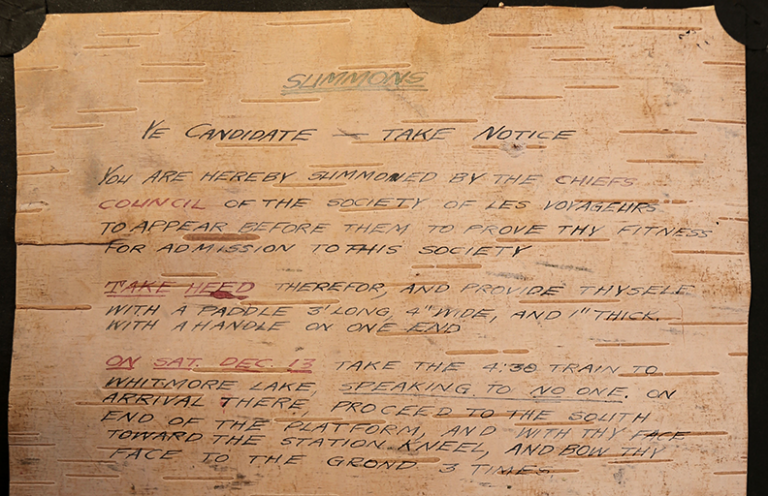 SUMMONS
YE CANDIDATE — TAKE NOTICE
YOU ARE HEREBY SUMMONED BY THE CHIEFS
COUNCIL OF THE SOCIETY OF LES VOYAGEURS
TO APPEAR BEFORE THEM TO PROVE THY FITNESS
FOR ADMISSION TO THIS SOCIETY
TAKE HEED THEREFOR, AND PROVIDE THYSELF
WITH A PADDLE 3' LONG, 4" WIDE, AND 1" THICK.
WITH A HANDLE ON ONE END
ON SAT. DEC. 13 TAKE THE 4:30 TRAIN TO
WHITMORE LAKE, SPEAKING TO NO ONE. ON
ARRIVAL THERE, PROCEED TO THE SOUTH
END OF THE PLATFORM, AND WITH THY FACE
TOWARD THE STATION KNEEL, AND BOW THY
FACE TO THE GROND 3 TIMES